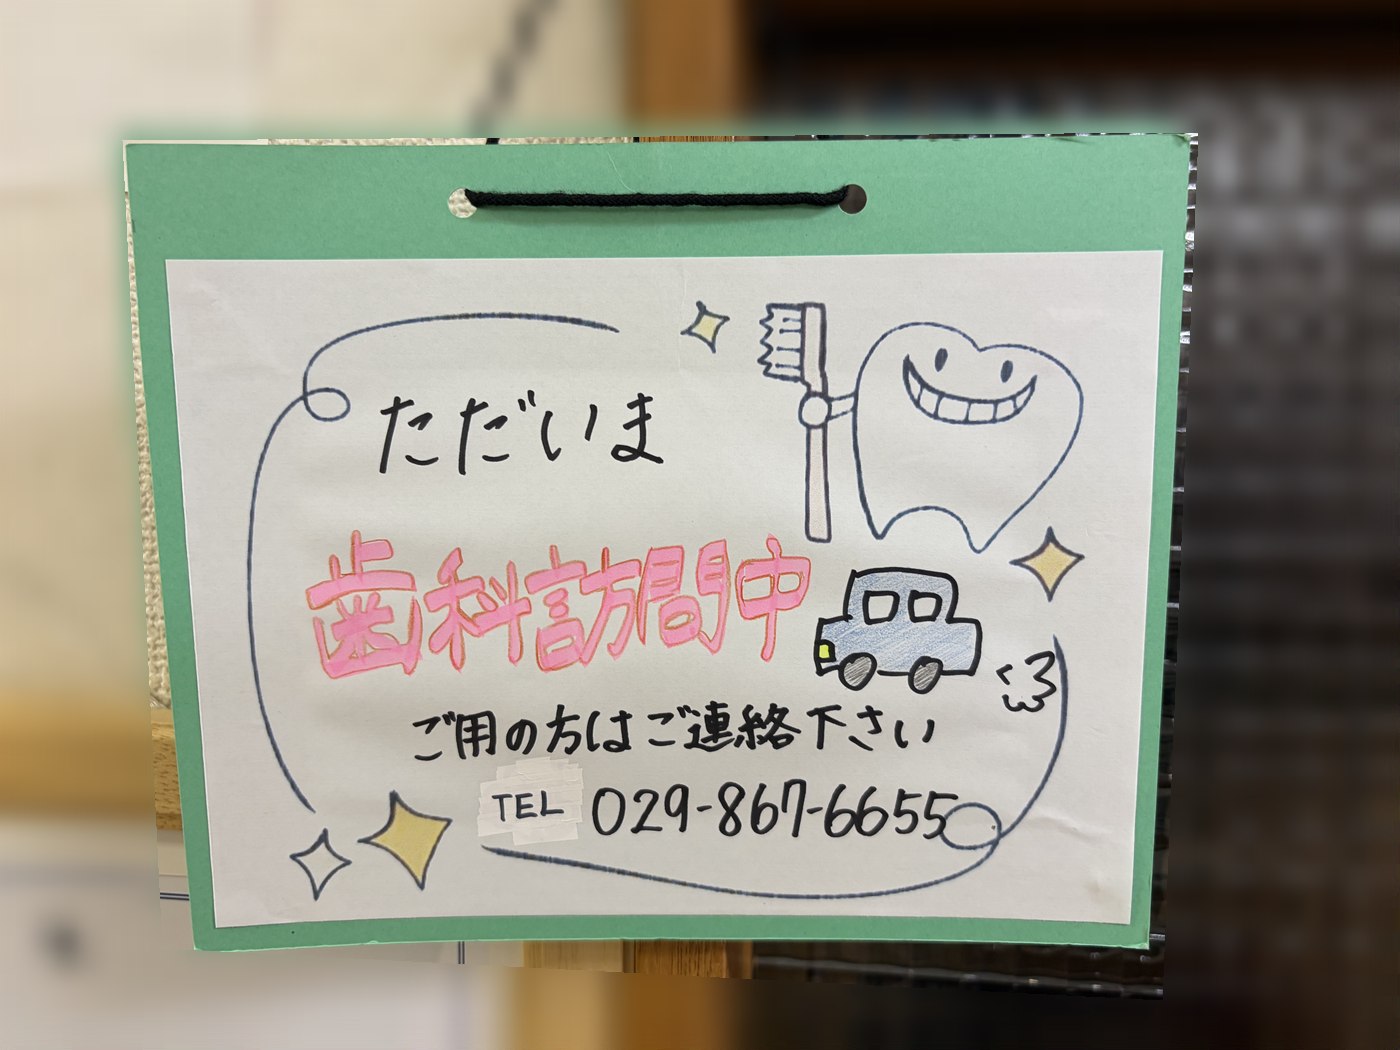 ただいま
歯科訪問中
ご用の方はご連絡下さい
TEL 029-867-6655